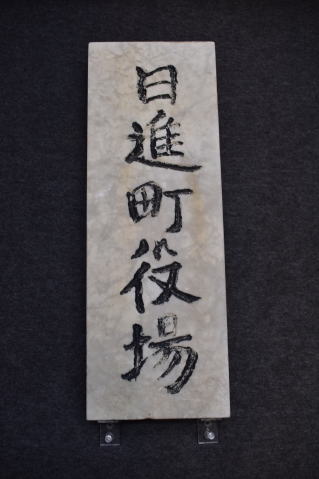 日進町役場